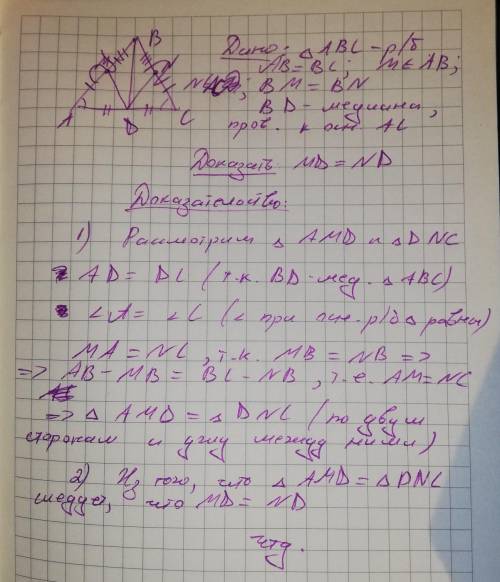 B
Дано: △ ABC - р/б
AB = BC; M ∈ AB;
N; BM = BN
A D C
BD - медиана,
пров. к осн. AC
Доказать MD = ND
Доказательство:
1) Рассмотрим △ AMD и △ DNC
AD = DC (т.к. BD - мед. △ ABC)
∠A = ∠C (∠ при осн. р/б △ равны)
MA = NC, т.к. MB = NB =>
=> AB - MB = BC - NB, т.е. AM = NC
=> △ AMD = △ DNC (по двум
сторонам и углу между ними)
2) Из того, что △ AMD = △ DNC
следует, что MD = ND
чтд.